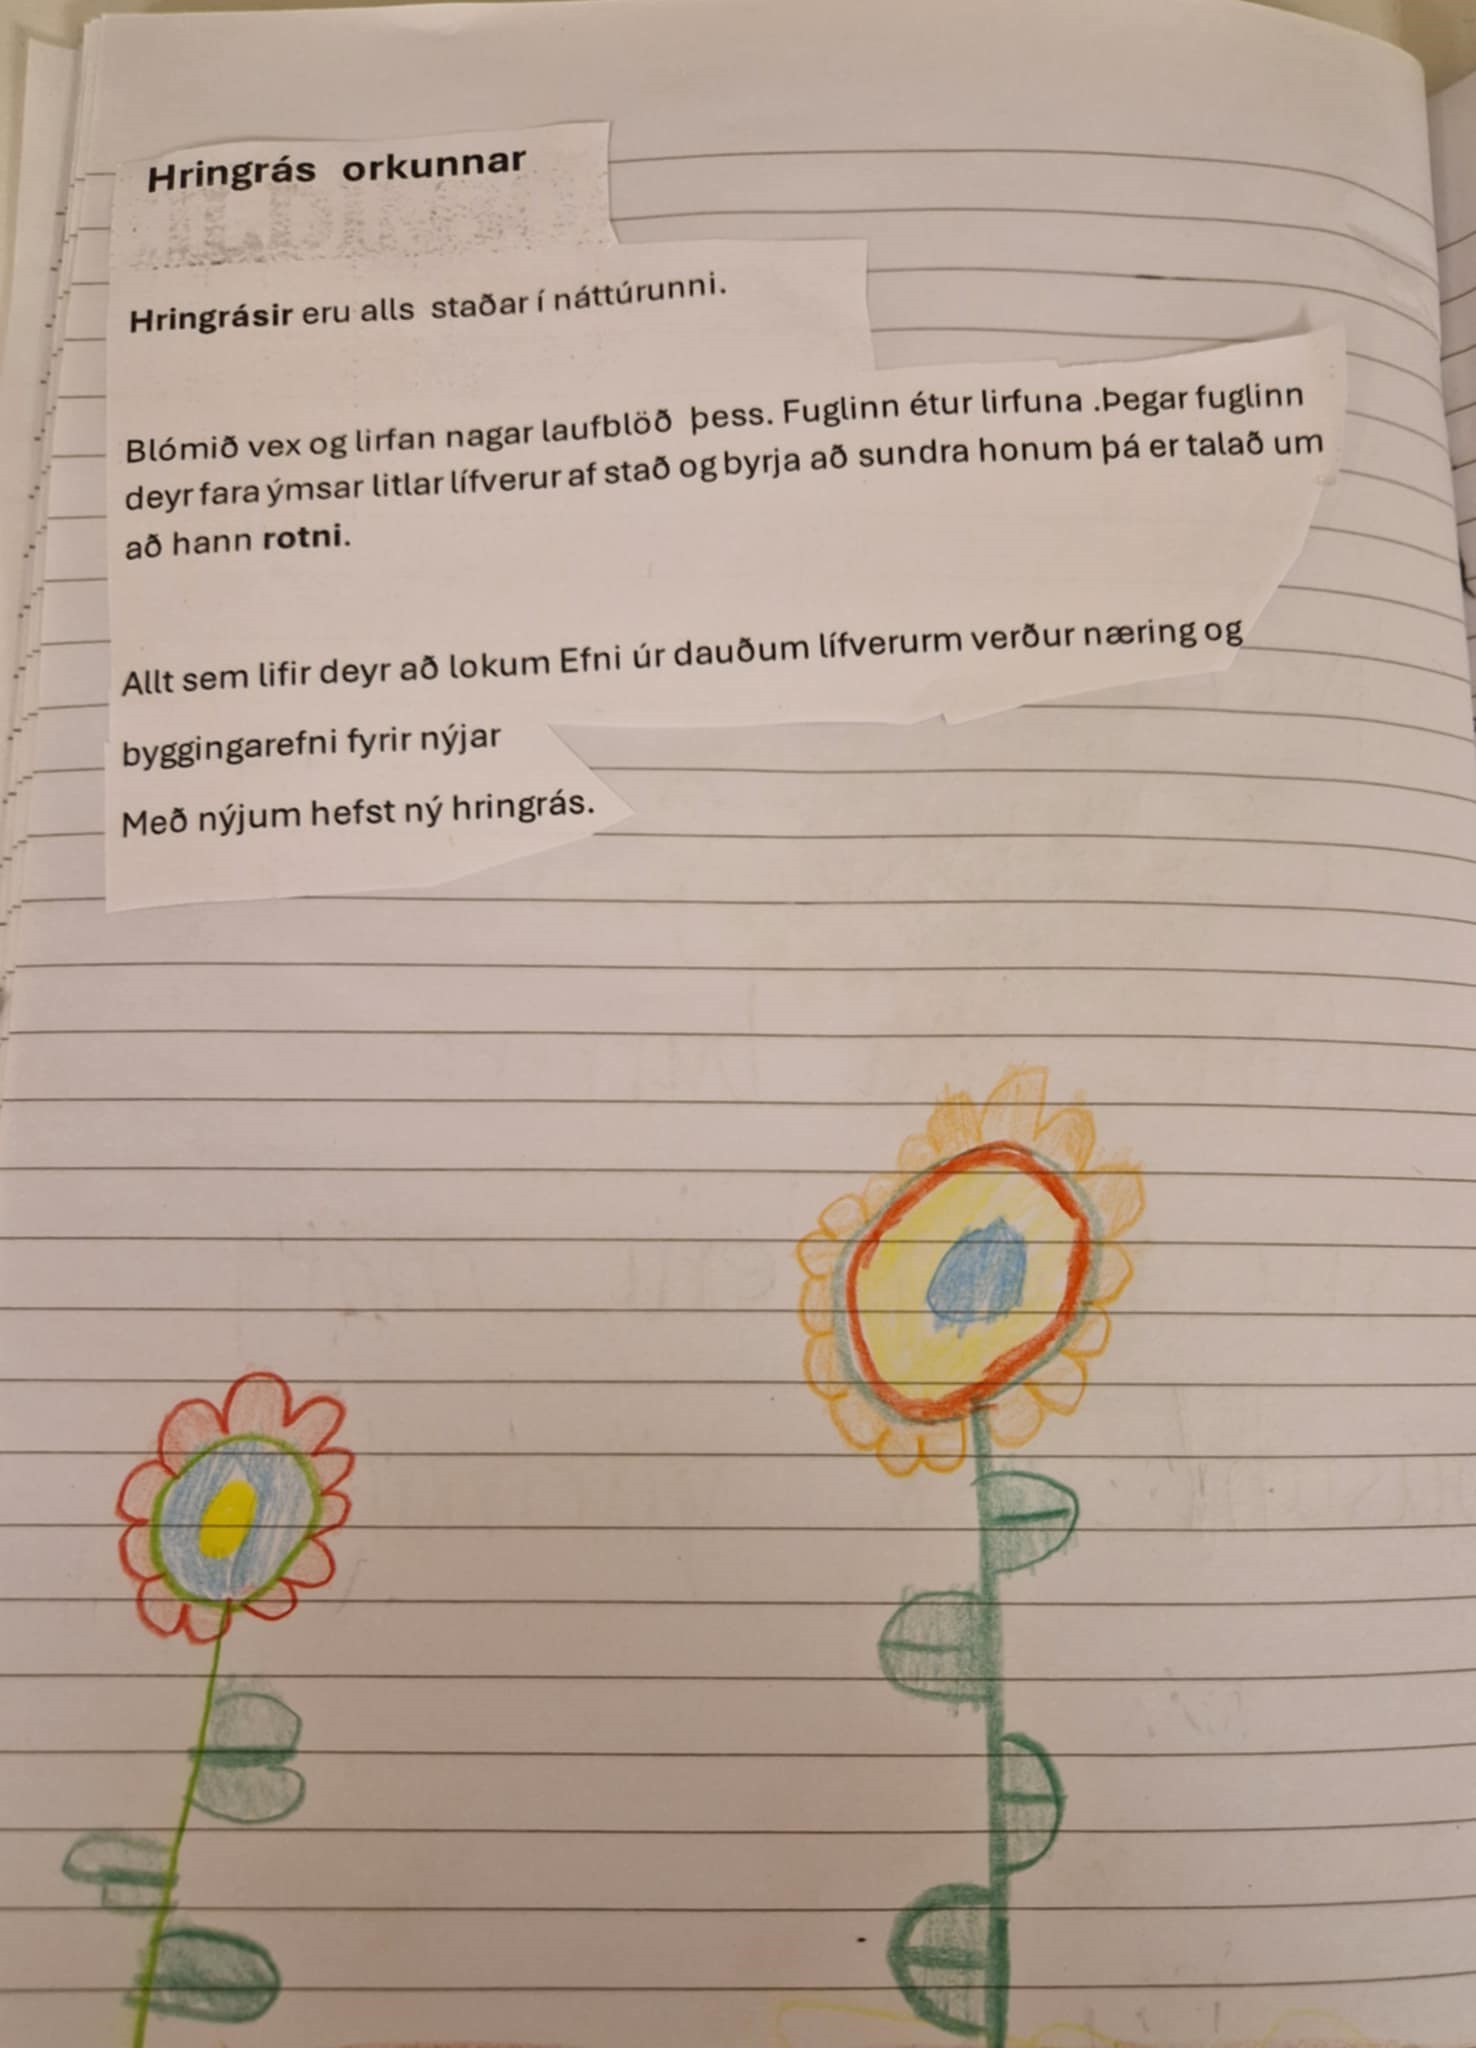 Hringrás orkunnar
Hringrásir eru alls staðar í náttúrunni.
Blómið vex og lirfan nagar laufblöð þess. Fuglinn étur lirfuna .Þegar fuglinn
deyr fara ýmsar litlar lífverur af stað og byrja að sundra honum þá er talað um
að hann rotni.
Allt sem lifir deyr að lokum Efni úr dauðum lífverurm verður næring og
byggingarefni fyrir nýjar
Með nýjum hefst ný hringrás.